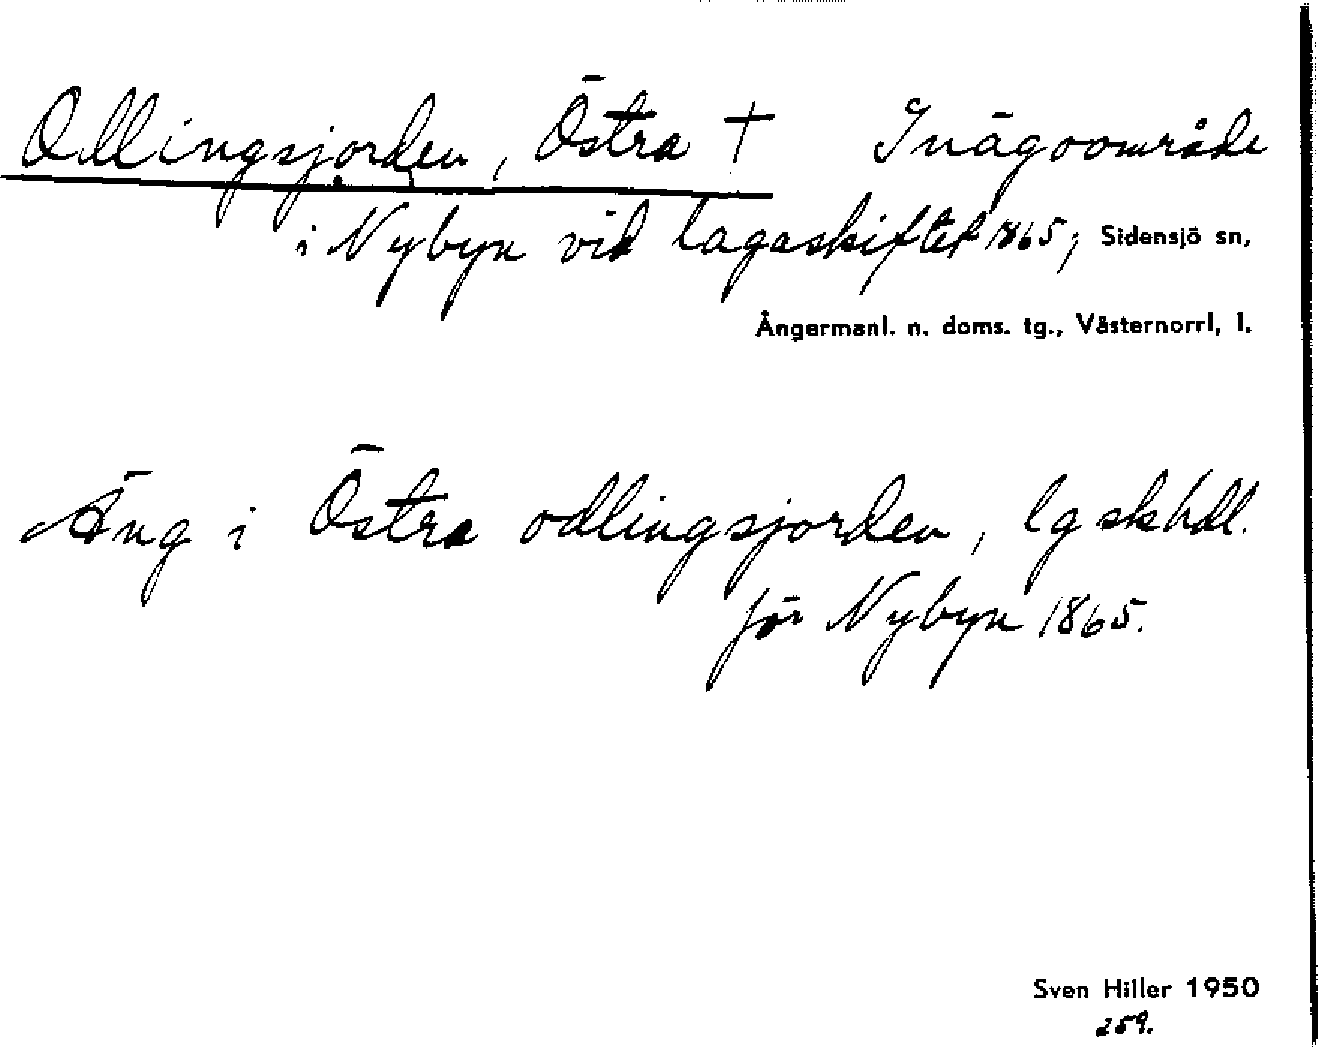 Odlingsjorden, Östra † Inägoområde
i Nybyn vid lagaskiftet 1865; Sidensjö sn,
Ångermanl. n. doms. tg., Västernorrl, l.
Äng i Östra odlingsjorden, lgskhdl.
för Nybyn 1865.
Sven Hiller 1950
259.